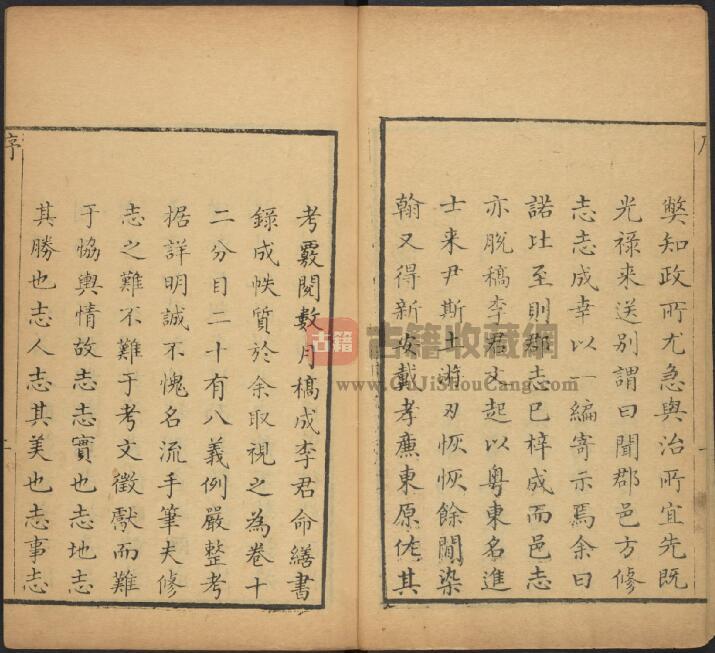 弊知政所尤急與治所宜先既
光祿来送别謂曰聞郡邑方修
志志成幸以一編寄示焉余曰
諾比至則郡志已梓成而邑志
亦脱稿李君文起以粵東名進
士来尹斯土游刃恢恢餘閒染
翰又得新安戴孝廉東原佐其
考覈閱數月槁成李君命繕書
錄成帙質於余取視之為卷十
二分目二十有八義例嚴整考
据詳明誠不愧名流手筆夫修
志之難不難于考文徵獻而難
于恊輿情故志志實也志地志
其勝也志人志其美也志事志
序
二
古籍
古籍收藏網
www.GuJiShouCang.com